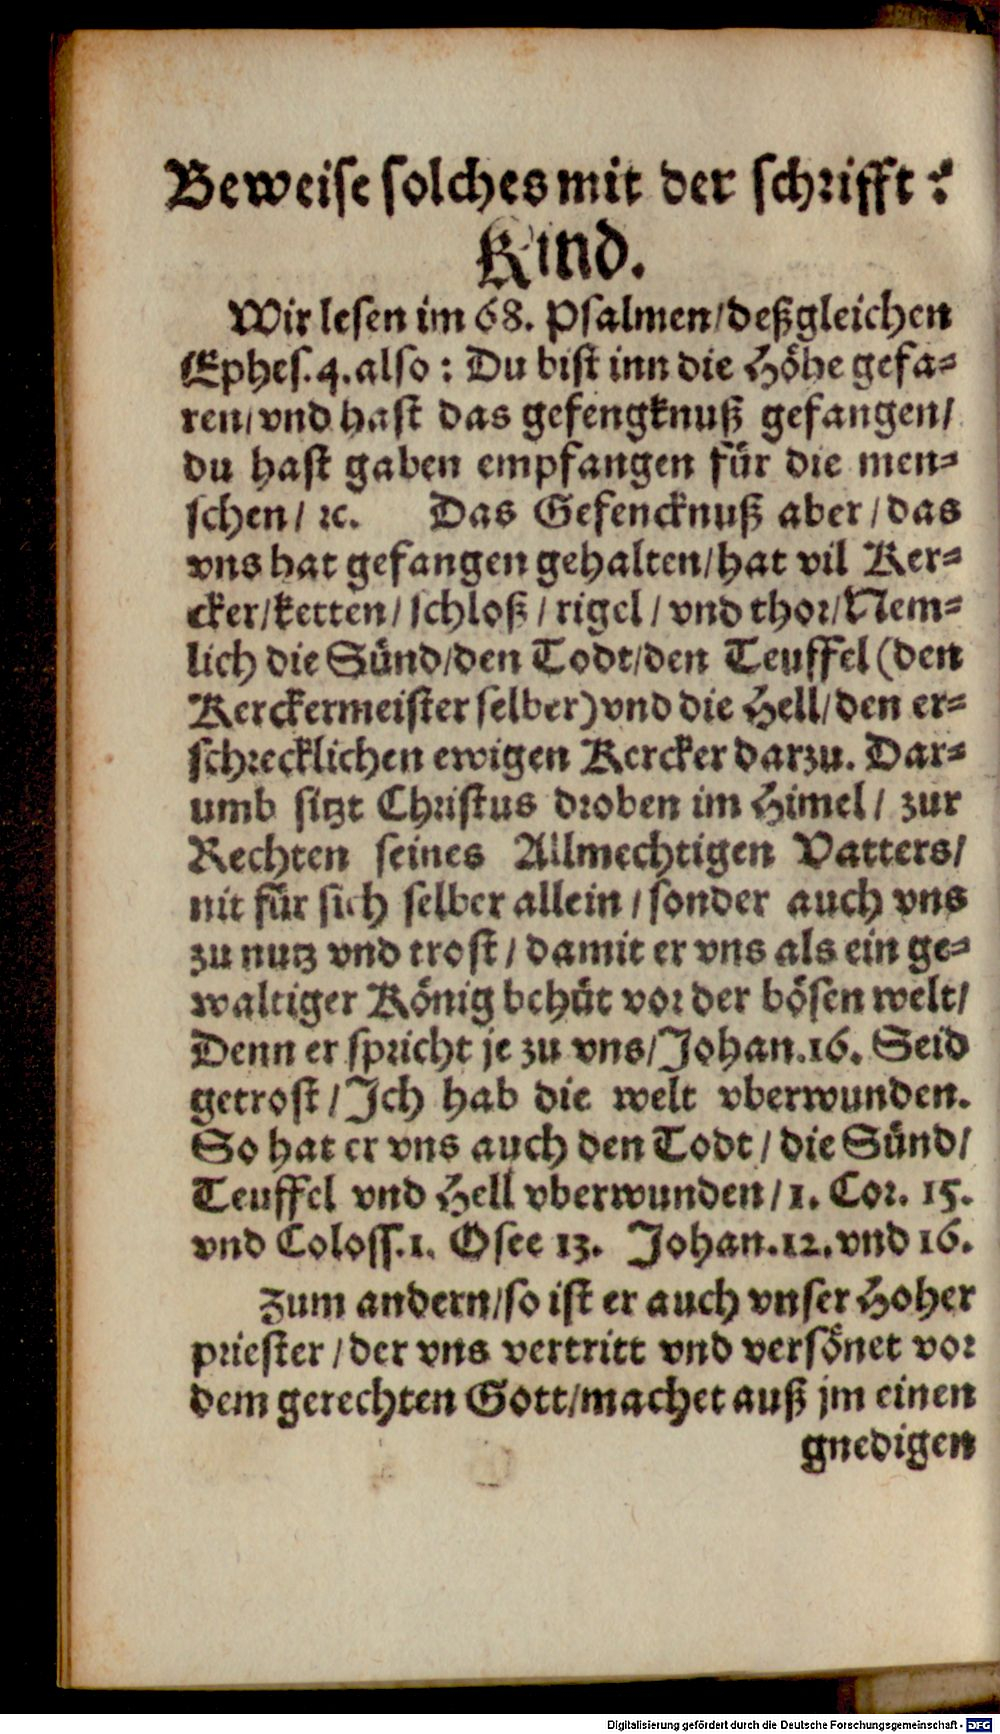 Beweise solches mit der schrifft?
Kind.
Wir lesen im 68. Psalmen/deßgleichen
Ephes.4.also: Du bist inn die Höhe gefa-
ren/vnd hast das gefengknuß gefangen/
du hast gaben empfangen für die men-
schen/ ꝛc. Das Gefencknuß aber/das
vns hat gefangen gehalten/hat vil Ker-
cker/ketten/schloß/rigel/vnd thor/Nem-
lich die Sünd/den Todt/den Teuffel (den
Kerckermeister selber) vnd die Hell/den er-
schrecklichen ewigen Kercker darzu. Dar-
umb sitzt Christus droben im Himel/ zur
Rechten seines Allmechtigen Vatters/
nit für sich selber allein/sonder auch vns
zu nutz vnd trost/damit er vns als ein ge-
waltiger König behüt vor der bösen welt/
Denn er spricht je zu vns/Johan.16. Seid
getrost/Ich hab die welt vberwunden.
So hat er vns auch den Todt/die Sünd/
Teuffel vnd Hell vberwunden/1. Cor. 15.
vnd Coloss.1. Osee 13. Johan.12.vnd 16.
Zum andern/so ist er auch vnser Hoher
priester/der vns vertritt vnd versönet vor
dem gerechten Gott/machet auß jm einen
gnedigen
Digitalisierung gefördert durch die Deutsche Forschungsgemeinschaft - DFG